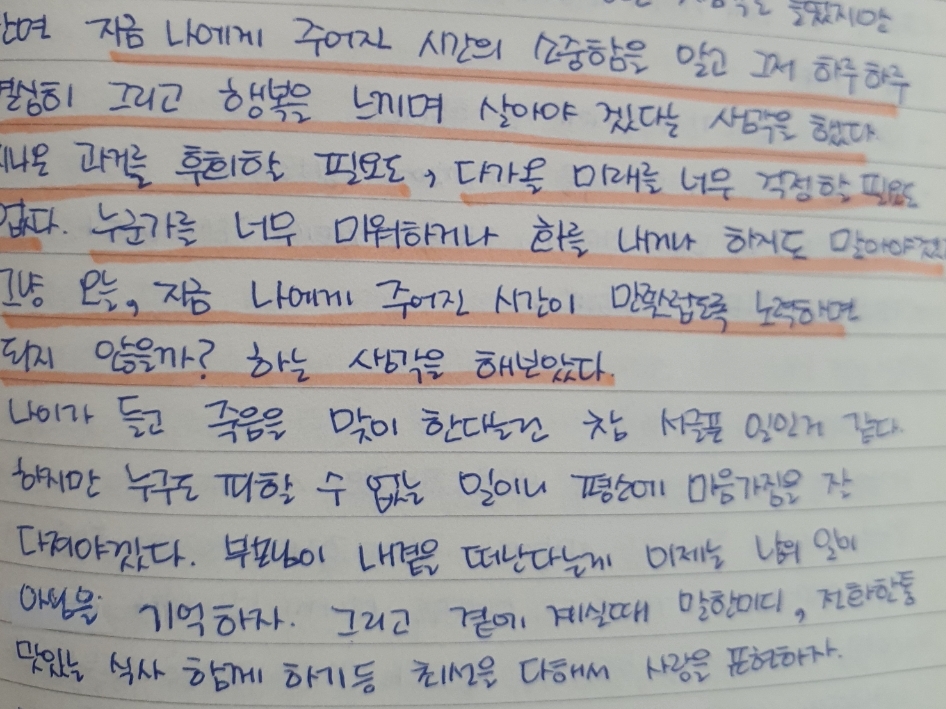 지금 나에게 주어진 시간의 소중함을 알고 그저 하루하루
열심히 그리고 행복을 느끼며 살아야 겠다는 생각을 했다.
지나온 과거를 후회할 필요도, 다가올 미래를 너무 걱정할 필요도
없다. 누군가를 너무 미워하거나 화를 내거나 하지도 말아야겠다
그냥 오늘, 지금 나에게 주어진 시간이 만족스럽도록 노력하면
되지 않을까? 하는 생각을 해보았다.
나이가 들고 죽음을 맞이 한다는건 참 서글픈 일인거 같다.
하지만 누구도 피할 수 없는 일이니 평소에 마음가짐을 잘
다져야겠다. 부모님이 내곁을 떠난다는게 이제는 남의 일이
아님을 기억하자. 그리고 곁에 계실때 말한마디, 전화한통
맛있는 식사 함께 하기등 최선을 다해서 사랑을 표현하자.